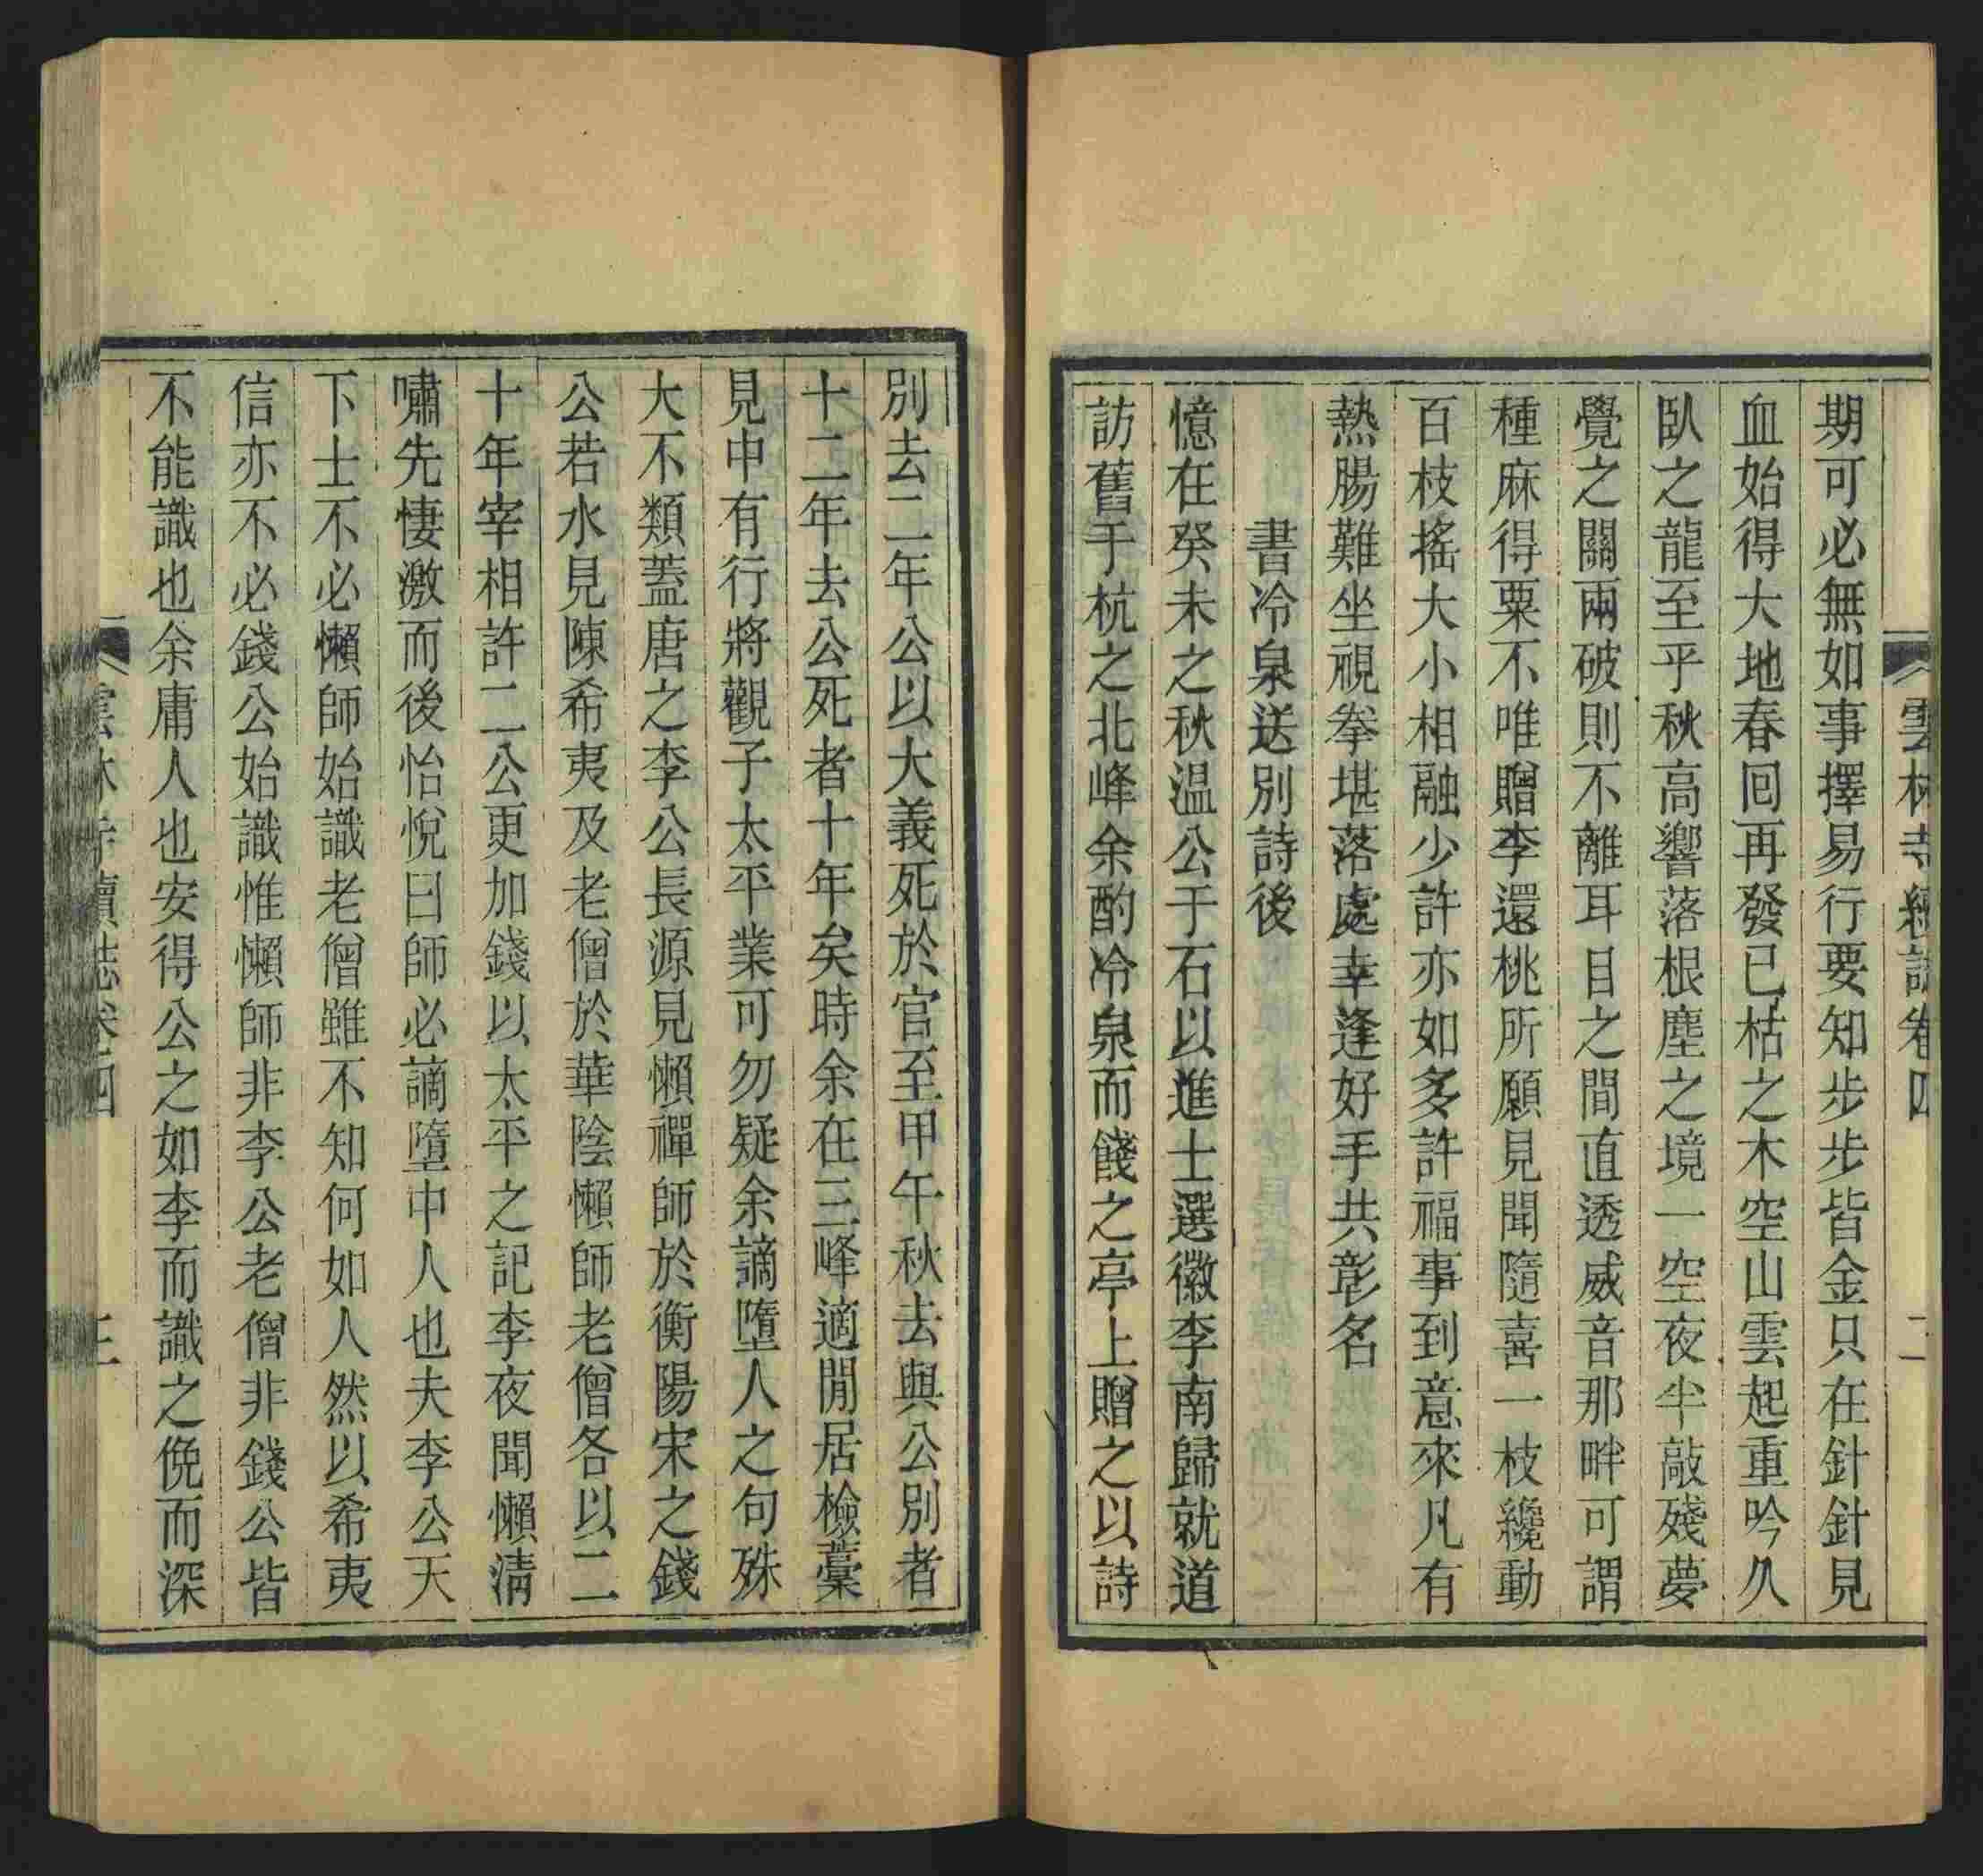 雲林寺續誌卷四 二
期可必無如事擇易行要知步步皆金只在針針見
血始得大地春回再發已枯之木空山雲起重吟久
臥之龍至乎秋高響落根塵之境一空夜半敲殘夢
覺之關兩破則不離耳目之間直透威音那畔可謂
種麻得粟不唯贈李還桃所願見聞隨喜一枝纔動
百枝搖大小相融少許亦如多許福事到意來凡有
熱腸難坐視拳堪落處幸逢好手共彰名
書冷泉送別詩後
憶在癸未之秋温公于石以進士選徽李南歸就道
訪舊于杭之北峰余酌冷泉而餞之亭上贈之以詩
別去二年公以大義死於官至甲午秋去與公別者
十二年去公死者十年矣時余在三峰適閒居檢藁
見中有行將觀子太平業可勿疑余謫墮人之句殊
大不類蓋唐之李公長源見懶禪師於衡陽宋之錢
公若水見陳希夷及老僧於華陰懶師老僧各以二
十年宰相許二公更加錢以太平之記李夜聞懶清
嘯先悽激而後怡悅曰師必謫墮中人也夫李公天
下士不必懶師始識老僧雖不知何如人然以希夷
信亦不必錢公始識惟懶師非李公老僧非錢公皆
不能識也余庸人也安得公之如李而識之俛而深
雲林寺續誌卷四 三